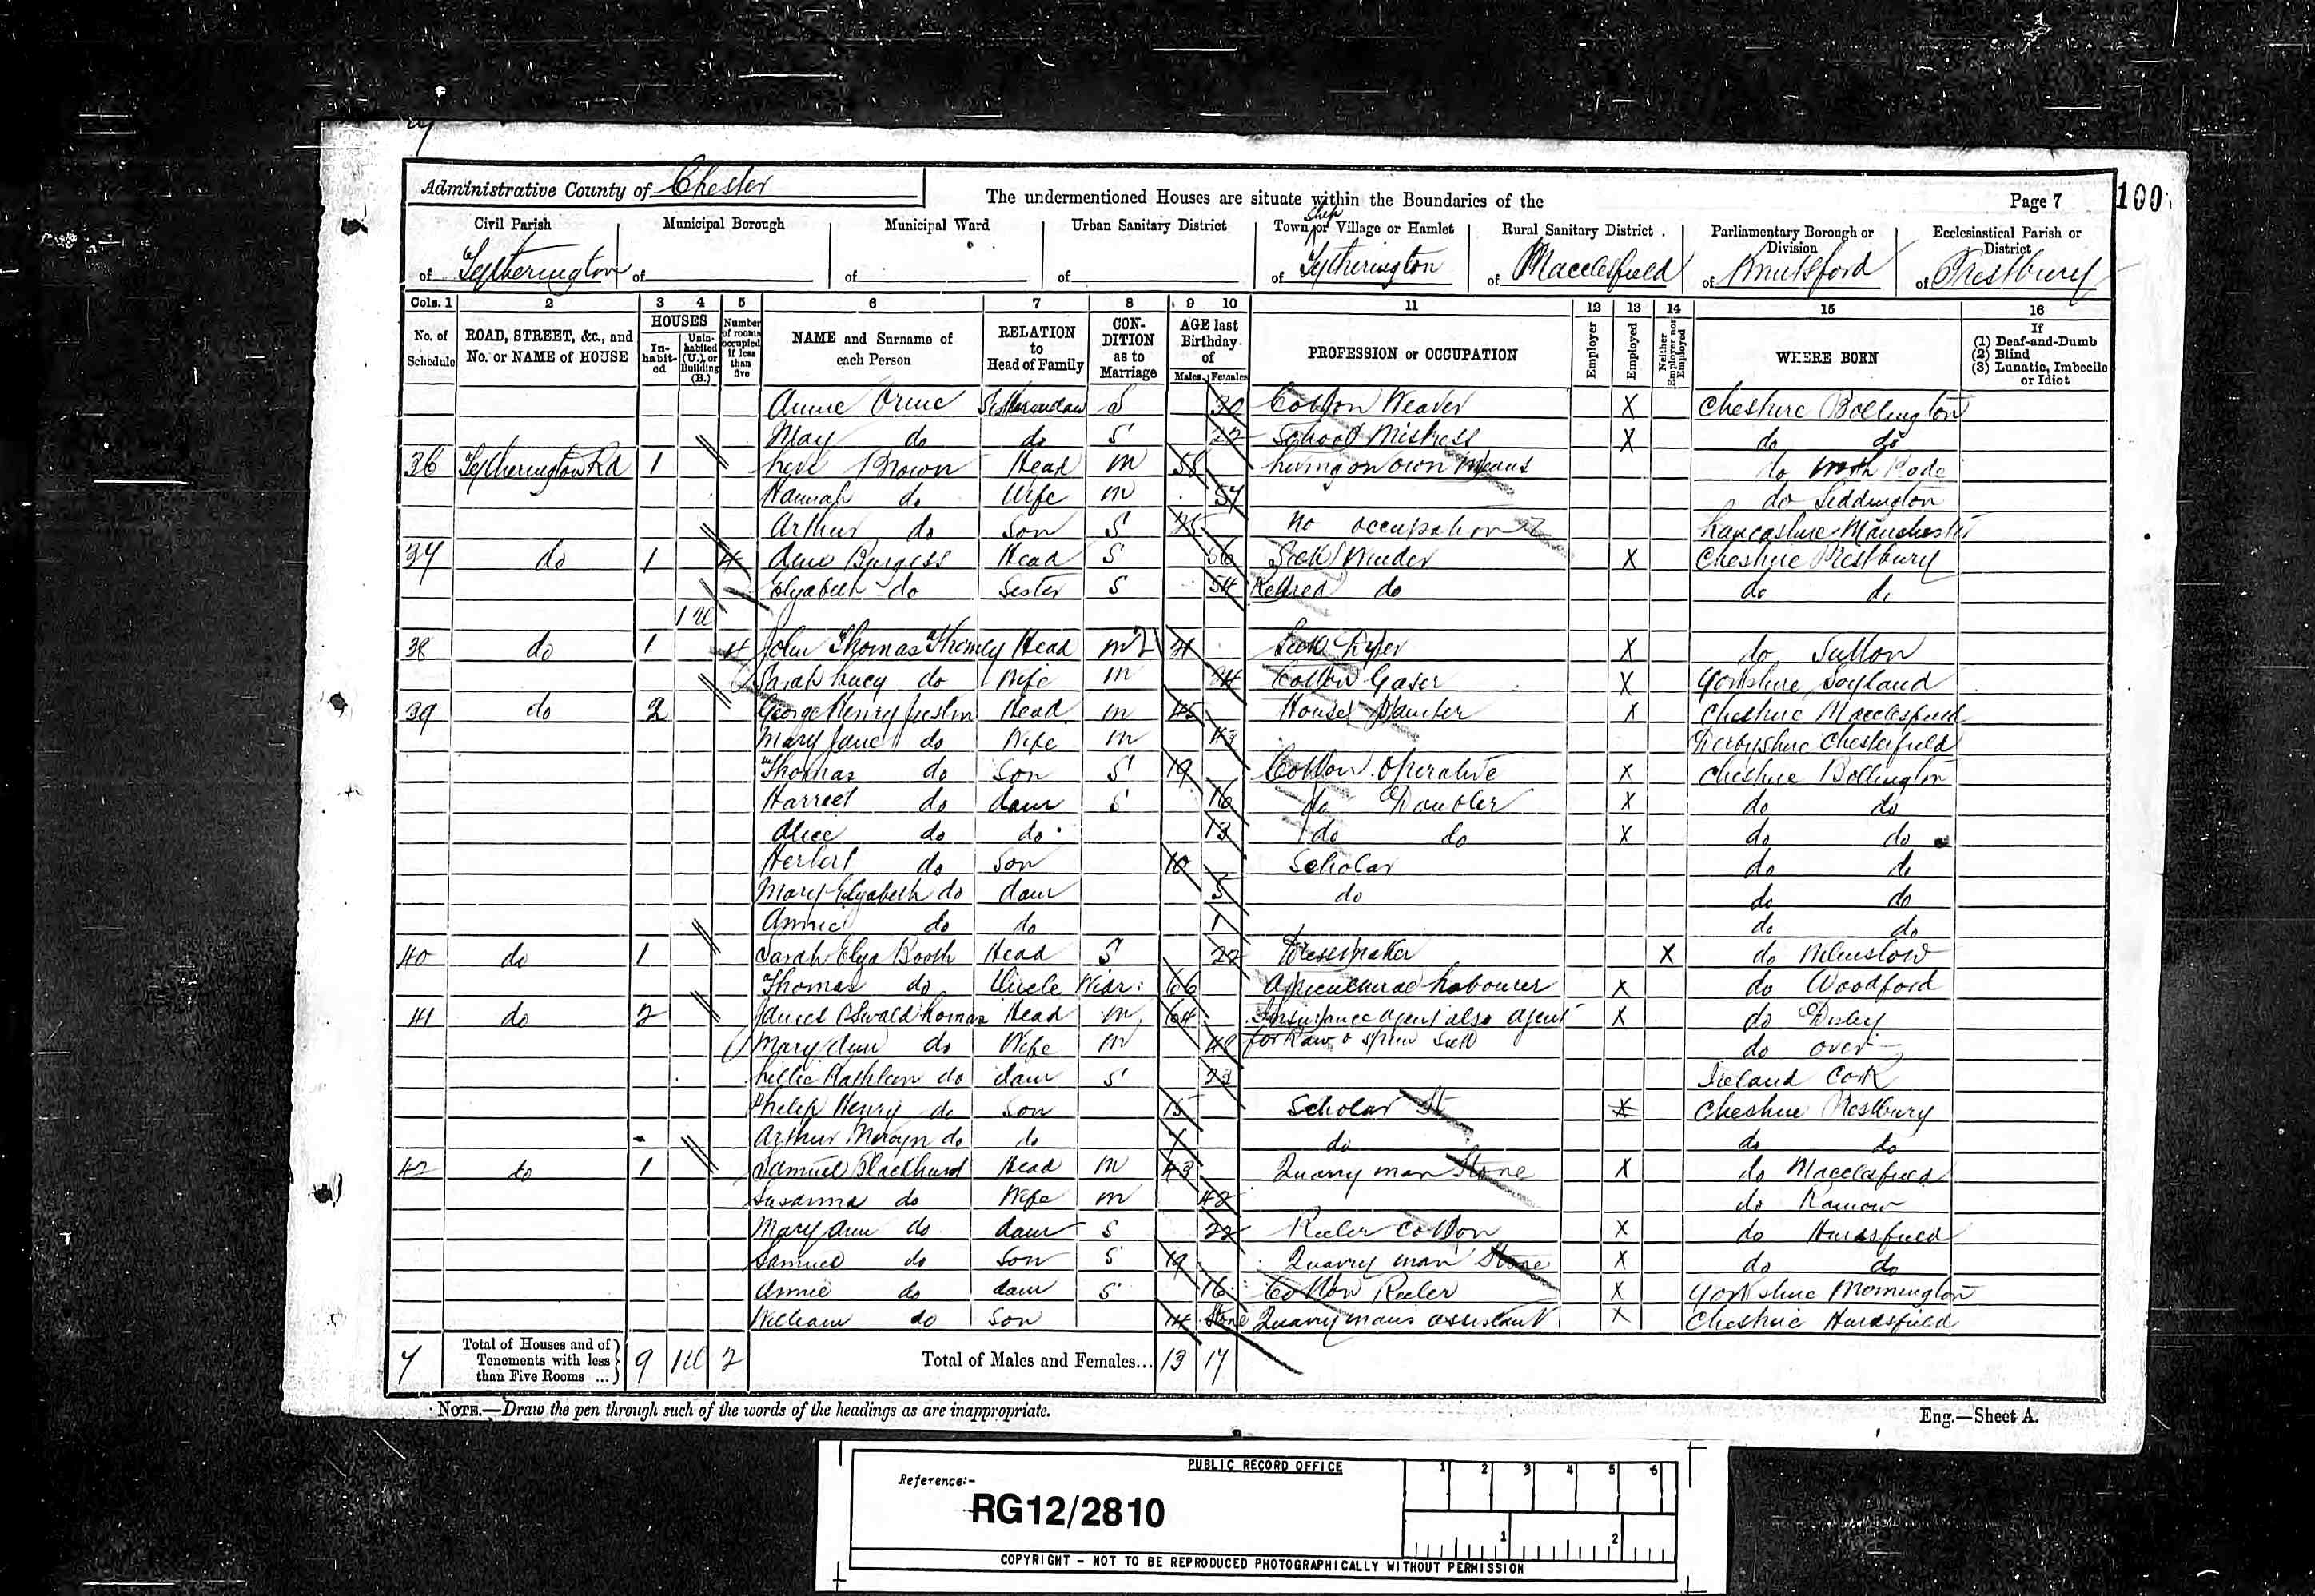 Administrative County of Chester
The undermentioned Houses are situate within the Boundaries of the
Page 7
100
Civil Parish
Municipal Borough
Municipal Ward
Urban Sanitary District
Town ship or Village or Hamlet
Rural Sanitary District
Parliamentary Borough or Division
Ecclesiastical Parish or District
of Tytherington of of of of Tytherington of Macclesfield of Knutsford of Prestbury
Cols. 1 2 3 4 5 6 7 8 9 10 11 12 13 14 15 16
No. of Schedule
ROAD, STREET, &c., and No. or NAME of HOUSE
HOUSES
Inhabited
Uninhabited (U.), or Building (B.)
Number of rooms occupied if less than five
NAME and Surname of each Person
RELATION to Head of Family
CONDITION as to Marriage
AGE last Birthday of
Males Females
PROFESSION or OCCUPATION
Employer
Employed
Neither Employer nor Employed
WHERE BORN
If
(1) Deaf-and-Dumb
(2) Blind
(3) Lunatic, Imbecile or Idiot
Annie Orme Sister in law S 30 Cotton Weaver X Cheshire Bollington
May do do S 22 School Mistress X do do
36 Tytherington Rd 1 Levi Brown Head M 58 Living on own Means do North Rode
Hannah do Wife M 57 do Siddington
Arthur do Son S 25 No occupation Lancashire Manchester
37 do 1 4 Ann Burgess Head S 56 Silk Winder X Cheshire Prestbury
Elizabeth do Sister S 54 Retired do do do
1 U
38 do 1 4 John Thomas Thornley Head M 21 Silk Dyer X do Sutton
Sarah Lucy do Wife M 24 Cotton Gaser X Yorkshire Soyland
39 do 2 George Henry Head M 45 House Painter X Cheshire Macclesfield
Mary Jane do Wife M 43 Derbyshire Chesterfield
Thomas do Son S 19 Cotton Operative X Cheshire Bollington
Harriet do daur S 16 do Doubler X do do
Alice do do 13 do do X do do
Herbert do Son 10 Scholar do do
Mary Elizabeth do daur 5 do do do
Annie do do 1 do do
40 do 1 Sarah Eliza Booth Head S 22 Dressmaker X do Wilmslow
Thomas do Uncle Widr. 66 Agricultural Labourer X do Woodford
41 do 2 James Oswald Head M 64 Insurance agent also agent X do Disley
Mary Ann do Wife M 48 for Raw & Spun Silk do Over
Lillie Kathleen do daur S 23 Ireland Cork
Philip Henry do Son 15 Scholar St X Cheshire Prestbury
Arthur Mervyn do do 7 do do do
42 do 1 Samuel Blackhurst Head M 43 Quarry man Stone X do Macclesfield
Susanna do Wife M 42 do Rainow
Mary Ann do daur S 22 Reeler Cotton X do Hurdsfield
Samuel do Son S 19 Quarry man Stone X do do
Annie do daur S 16 Cotton Reeler X Yorkshire
William do Son 14 Stone Quarryman's assistant X Cheshire Hurdsfield
7 Total of Houses and of Tenements with less than Five Rooms ... 9 1U 2 Total of Males and Females... 13 17
NOTE.—Draw the pen through such of the words of the headings as are inappropriate.
Eng.—Sheet A.
PUBLIC RECORD OFFICE
Reference:-
RG12/2810
1 2 3 4 5 6
1 2
COPYRIGHT - NOT TO BE REPRODUCED PHOTOGRAPHICALLY WITHOUT PERMISSION